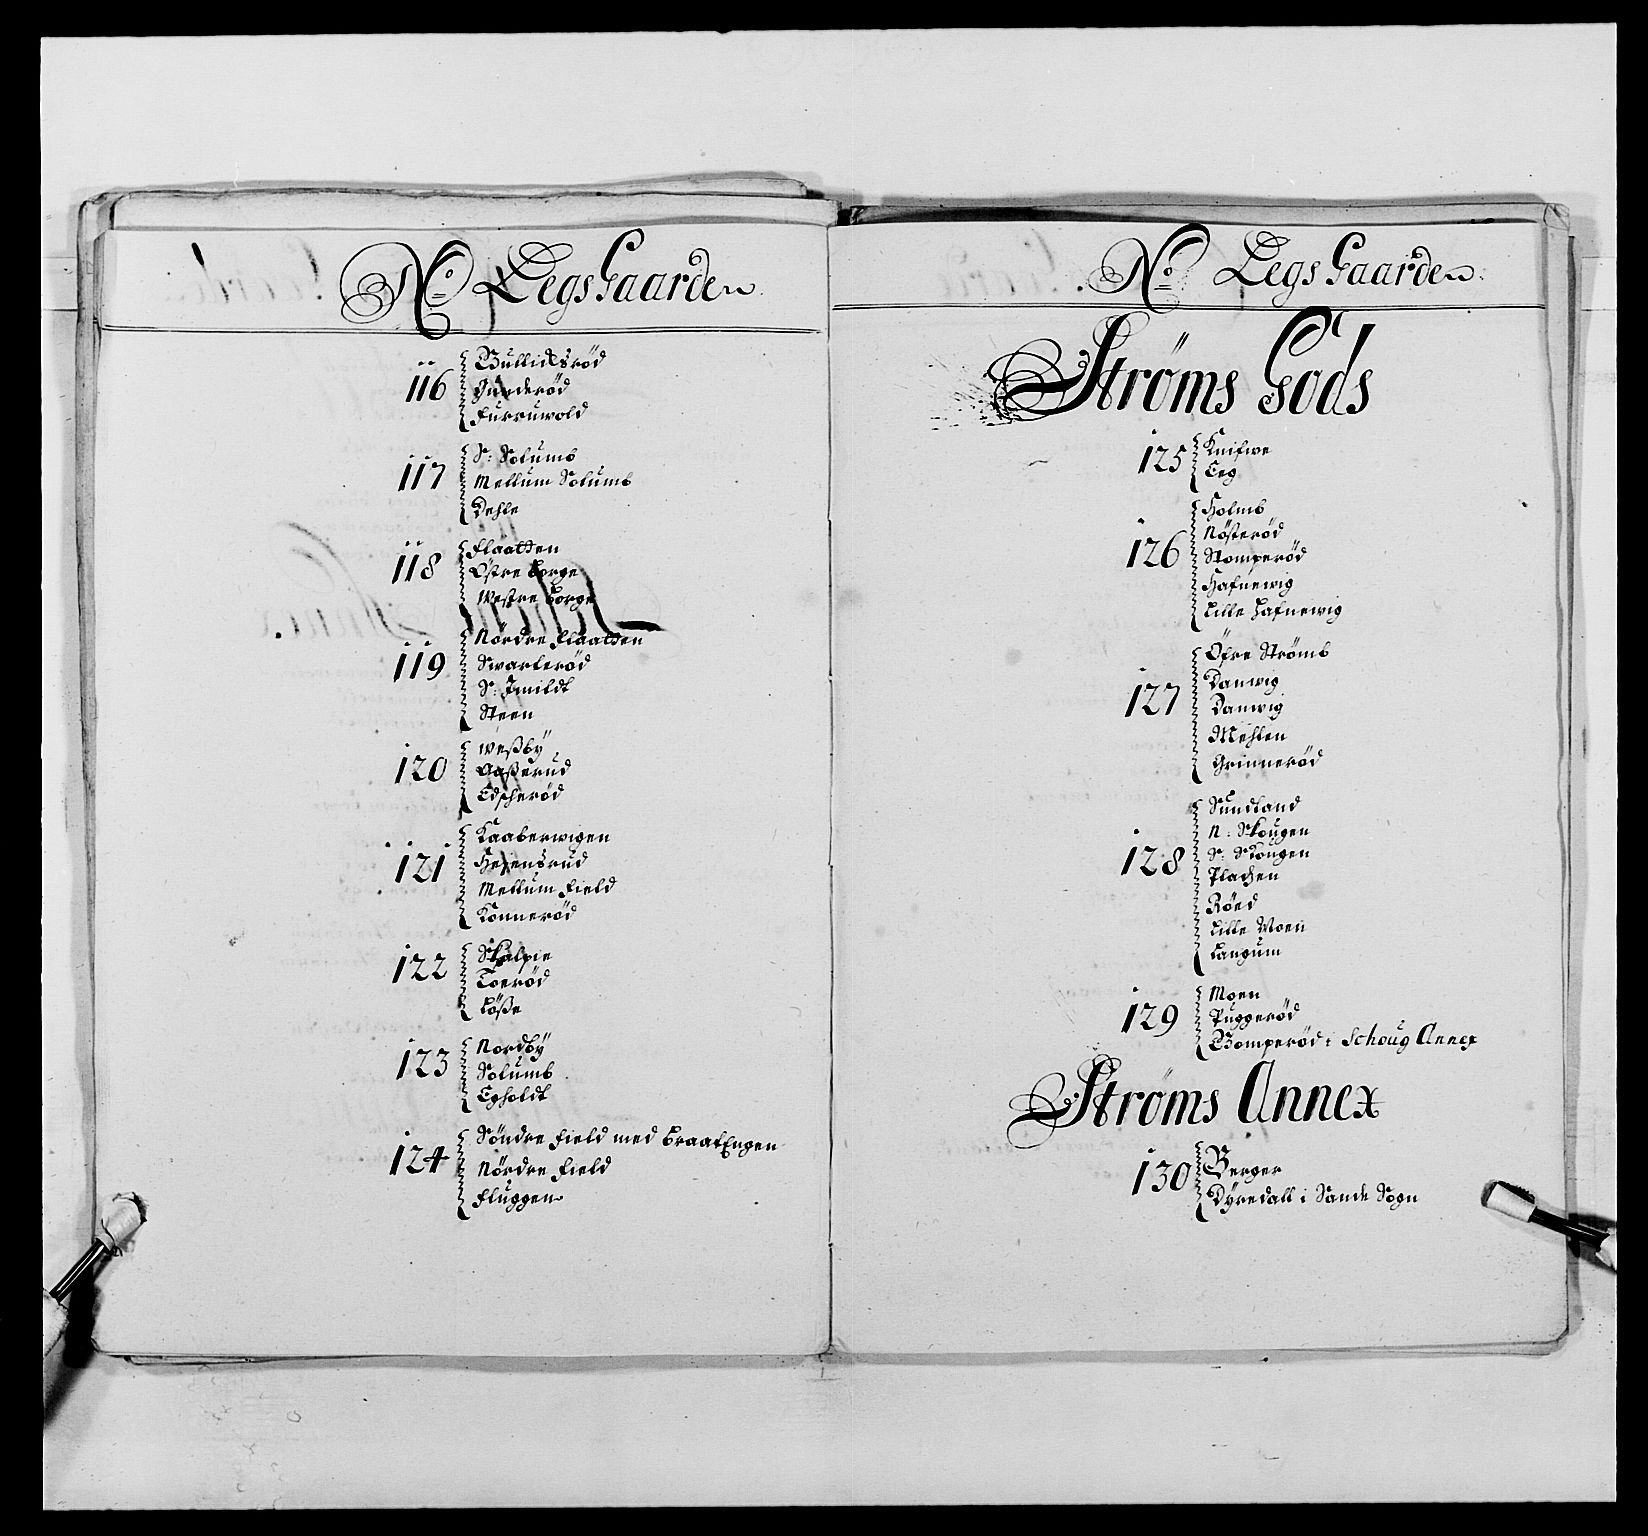 No. LegsGaarden
116 Bullidsröd
Gunderöd
Furruwold
117 S: Solumb
Mellum Solumb
Dehle
118 Flaatten
Östre Borge
Westre Borge
119 Nördre Flaatten
Swarteröd
S: Jmildt
Steen
120 Weßby
Aaßerud
Edseröd
121 Kaaberwigen
Hesensrud
Mellum Field
Konneröd
122 Skalpie
Toeröd
Löße
123 Nordby
Solumb
Egholdt
124 Söndre Field med BraatEngen
Nördre Field
Fluggen
No. LegsGaarden
Ströms Gods
125 Knifwe
Teg
126 Holmb
Nösteröd
Stomperöd
Hafnewig
Lille Hafnewig
127 Öfre Strömb
Danwig
Danwig
Mehlen
Grinneröd
128 Sundland
N: Skougen
S: Skougen
Placken
Röed
Lille Moen
Langum
129 Moen
Puggeröd
Bomperöd i Schoug Annex
Ströms Annex
130 Berger
Dÿredall i Sande Sogn